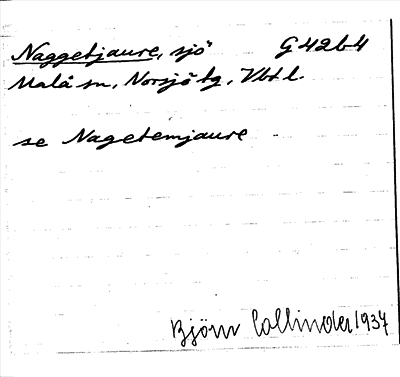 Naggetjaure, sjö G 42 b 4
Malå sn, Norsjö tg, Vbtl.
se Nagetemjaure
Björn Collinder 1937